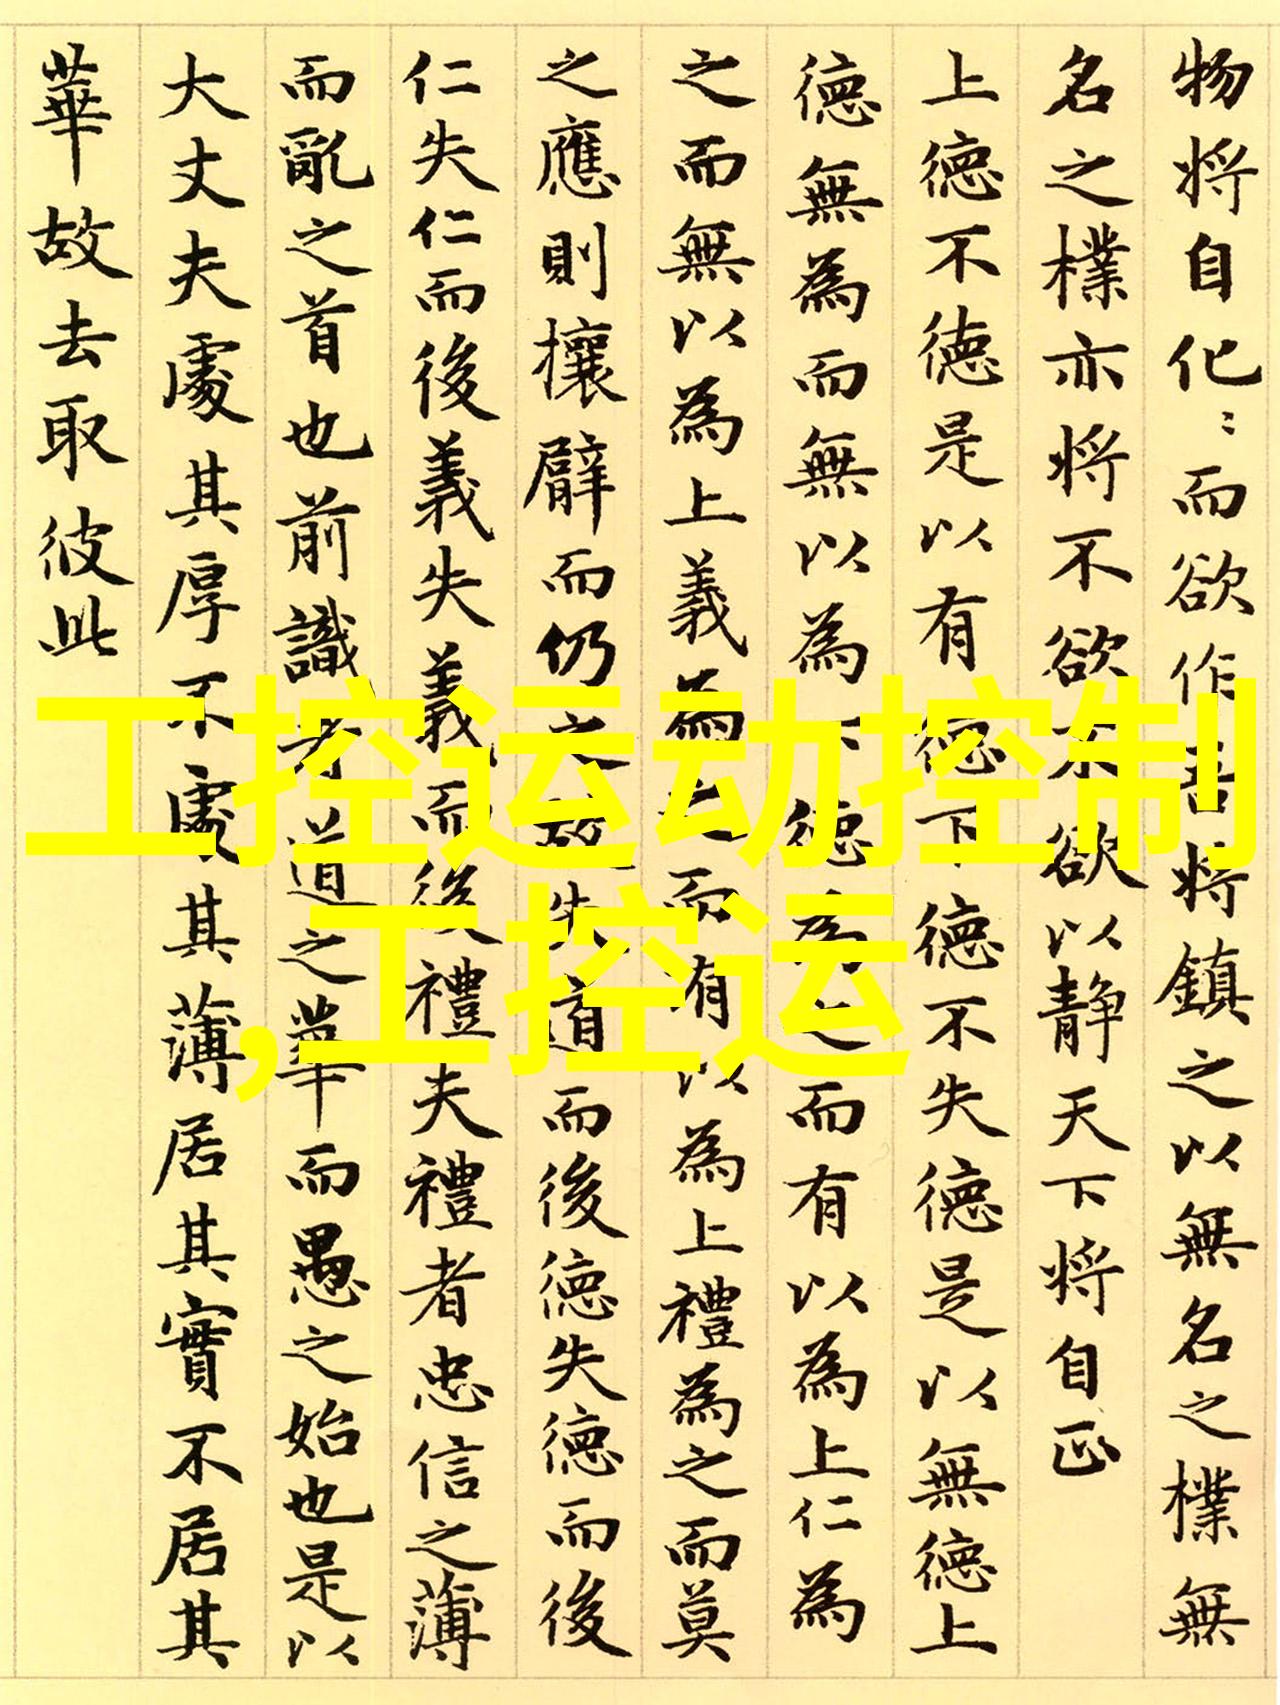 物将自化〻而欲作吾将鎮之以無名之樸無
名之樸亦将不欲不欲以静天下将自正
上德不德是以有德下德不失德是以無德上
德無為而無以為下德為之而有以為上仁為
之而無以為上義為之而有以為上禮為之而莫
之應則攘臂而仍之故失道而後德失德而後
仁失仁而後義失義而後禮夫禮者忠信之薄
而亂之首也前識者道之華而愚之始也是以
大丈夫處其厚不處其薄居其實不居其
華故去取彼此
工控运动控制
,工控运